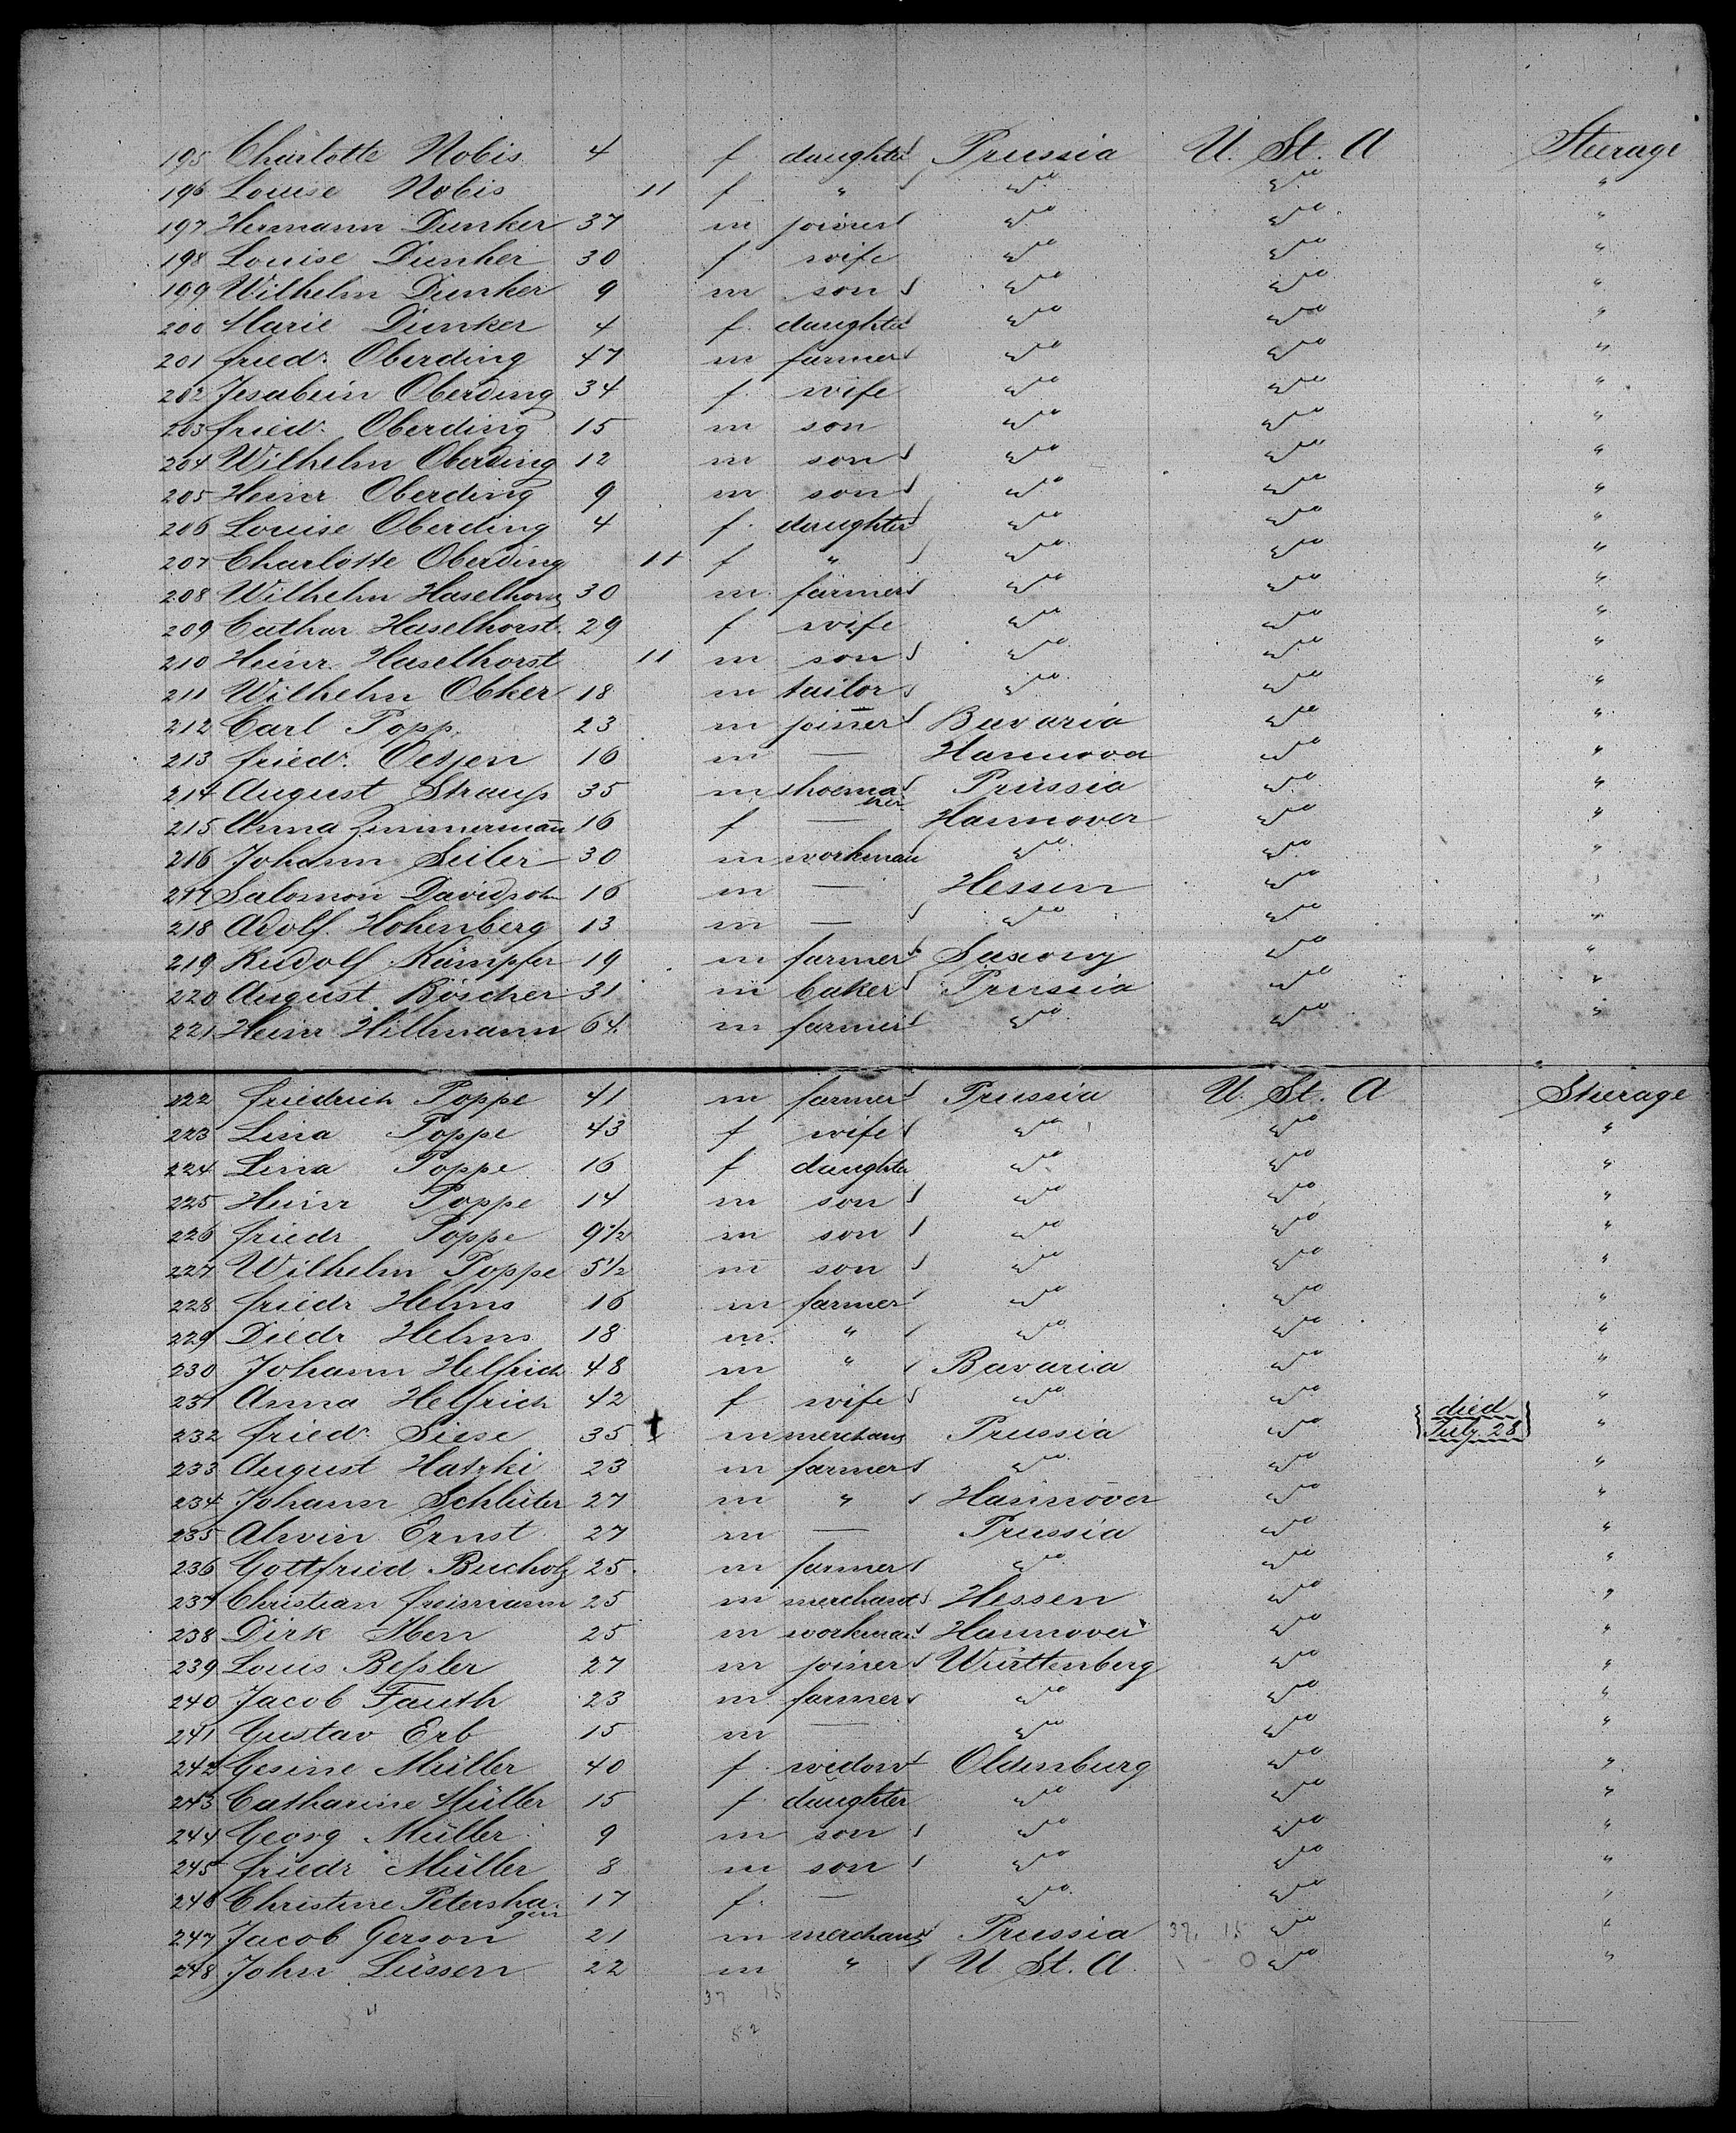 195 Charlotte Nobis 4 f. daughter Prussia U. St. A Steerage
196 Louise Nobis 11 f " do do "
197 Hermann Dunker 37 m joiner do do "
198 Louise Dunker 30 f wife do do "
199 Wilhelm Dunker 9 m son do do "
200 Marie Dunker 4 f. daughter do do "
201 fried. Oberding 47 m farmer do do "
202 Jesabein Oberding 34 f. wife do do "
203 fried. Oberding 15 m son do do "
204 Wilhelm Oberding 12 m son do do "
205 Heinr Oberding 9 m son do do "
206 Louise Oberding 4 f. daughter do do "
207 Charlotte Oberding 11 f " do do "
208 Wilhelm Haselhorst 30 m farmer do do "
209 Cathar Haselhorst 29 f wife do do "
210 Heinr. Haselhorst 11 m son do do "
211 Wilhelm Obker 18 m tailor do do "
212 Carl Popp. 23 m joiner Bavaria do "
213 fried. Oetjen 16 m — Hannover do "
214 August Strauß 35 m shoemaker Prussia do "
215 Anna Zimmermann 16 f — Hannover do "
216 Johann Seiler 30 m workman do do "
217 Salomon Davidsohn 16 m — Hessen do "
218 Adolf Hohenberg 13 m — do do "
219 Rudolf Kämpfer 19 m farmer Saxony do "
220 August Böscher 31 m baker Prussia do "
221 Heinr Hillmann 64 m farmer do do "
222 friedrich Poppe 41 m farmer Prussia U. St. A Steerage
223 Lina Poppe 43 f wife do do "
224 Lina Poppe 16 f daughter do do "
225 Heinr Poppe 14 m son do do "
226 friedr Poppe 9 1/2 m son do do "
227 Wilhelm Poppe 5 1/2 m son do do "
228 friedr Helms 16 m farmer do do "
229 Diedr Helms 18 m. " do do "
230 Johann Helfrich 48 m " Bavaria do "
231 Anna Helfrich 42 f wife do do "
232 fried. Siese 35 † m merchant Prussia do died July 28 "
233 August Hatzki 23 m farmer do do "
234 Johann Schlüter 27 m " Hannover do "
235 Alwin Ernst 27 m — Prussia do "
236 Gottfried Bucholz 25 m farmer do do "
237 Christian freimann 25 m merchant Hessen do "
238 Dirk Iben 25 m workman Hannover do "
239 Louis Beßler 27 m joiner Württenberg do "
240 Jacob Fauth 23 m farmer do do "
241 Gustav Erb 15 m — do do "
242 Gesine Müller 40 f. widow Oldenburg do "
243 Catharine Müller 15 f. daughter do do "
244 Georg Müller 9 m son do do "
245 friedr Müller 8 m son do do "
246 Christine Petershagen 17 f. — do do "
247 Jacob Gerson 21 m merchant Prussia 37. 15 do "
248 John Lüssen 22 m " U. St. A. 1 - 0 do "
37 15
52